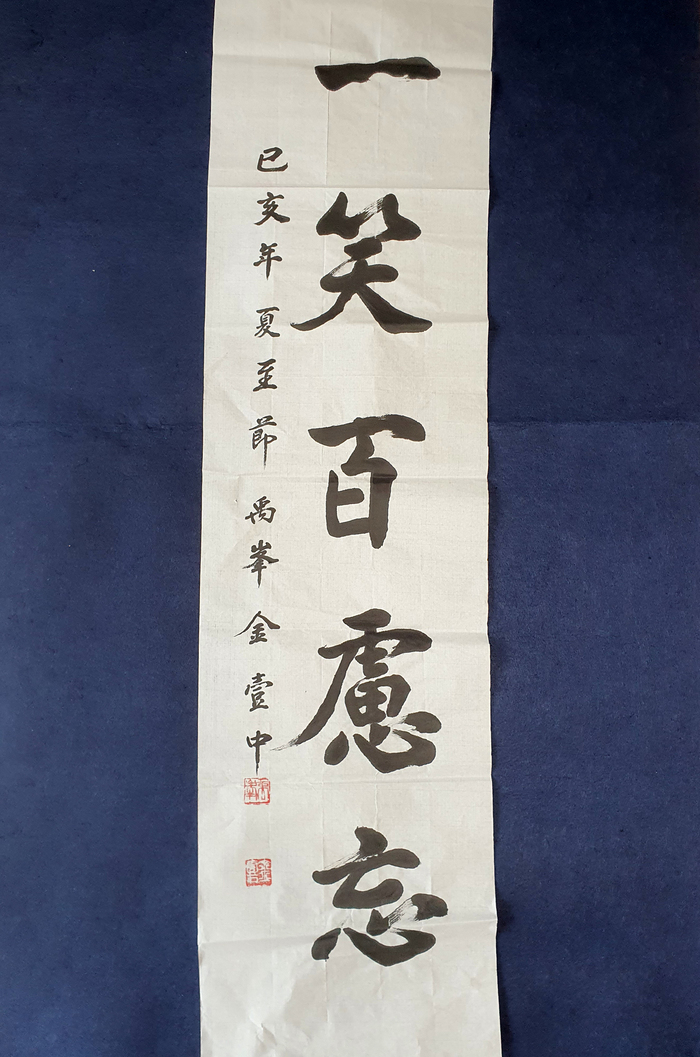 一笑百慮忘
己亥年 夏至節 禹峯 金壹中